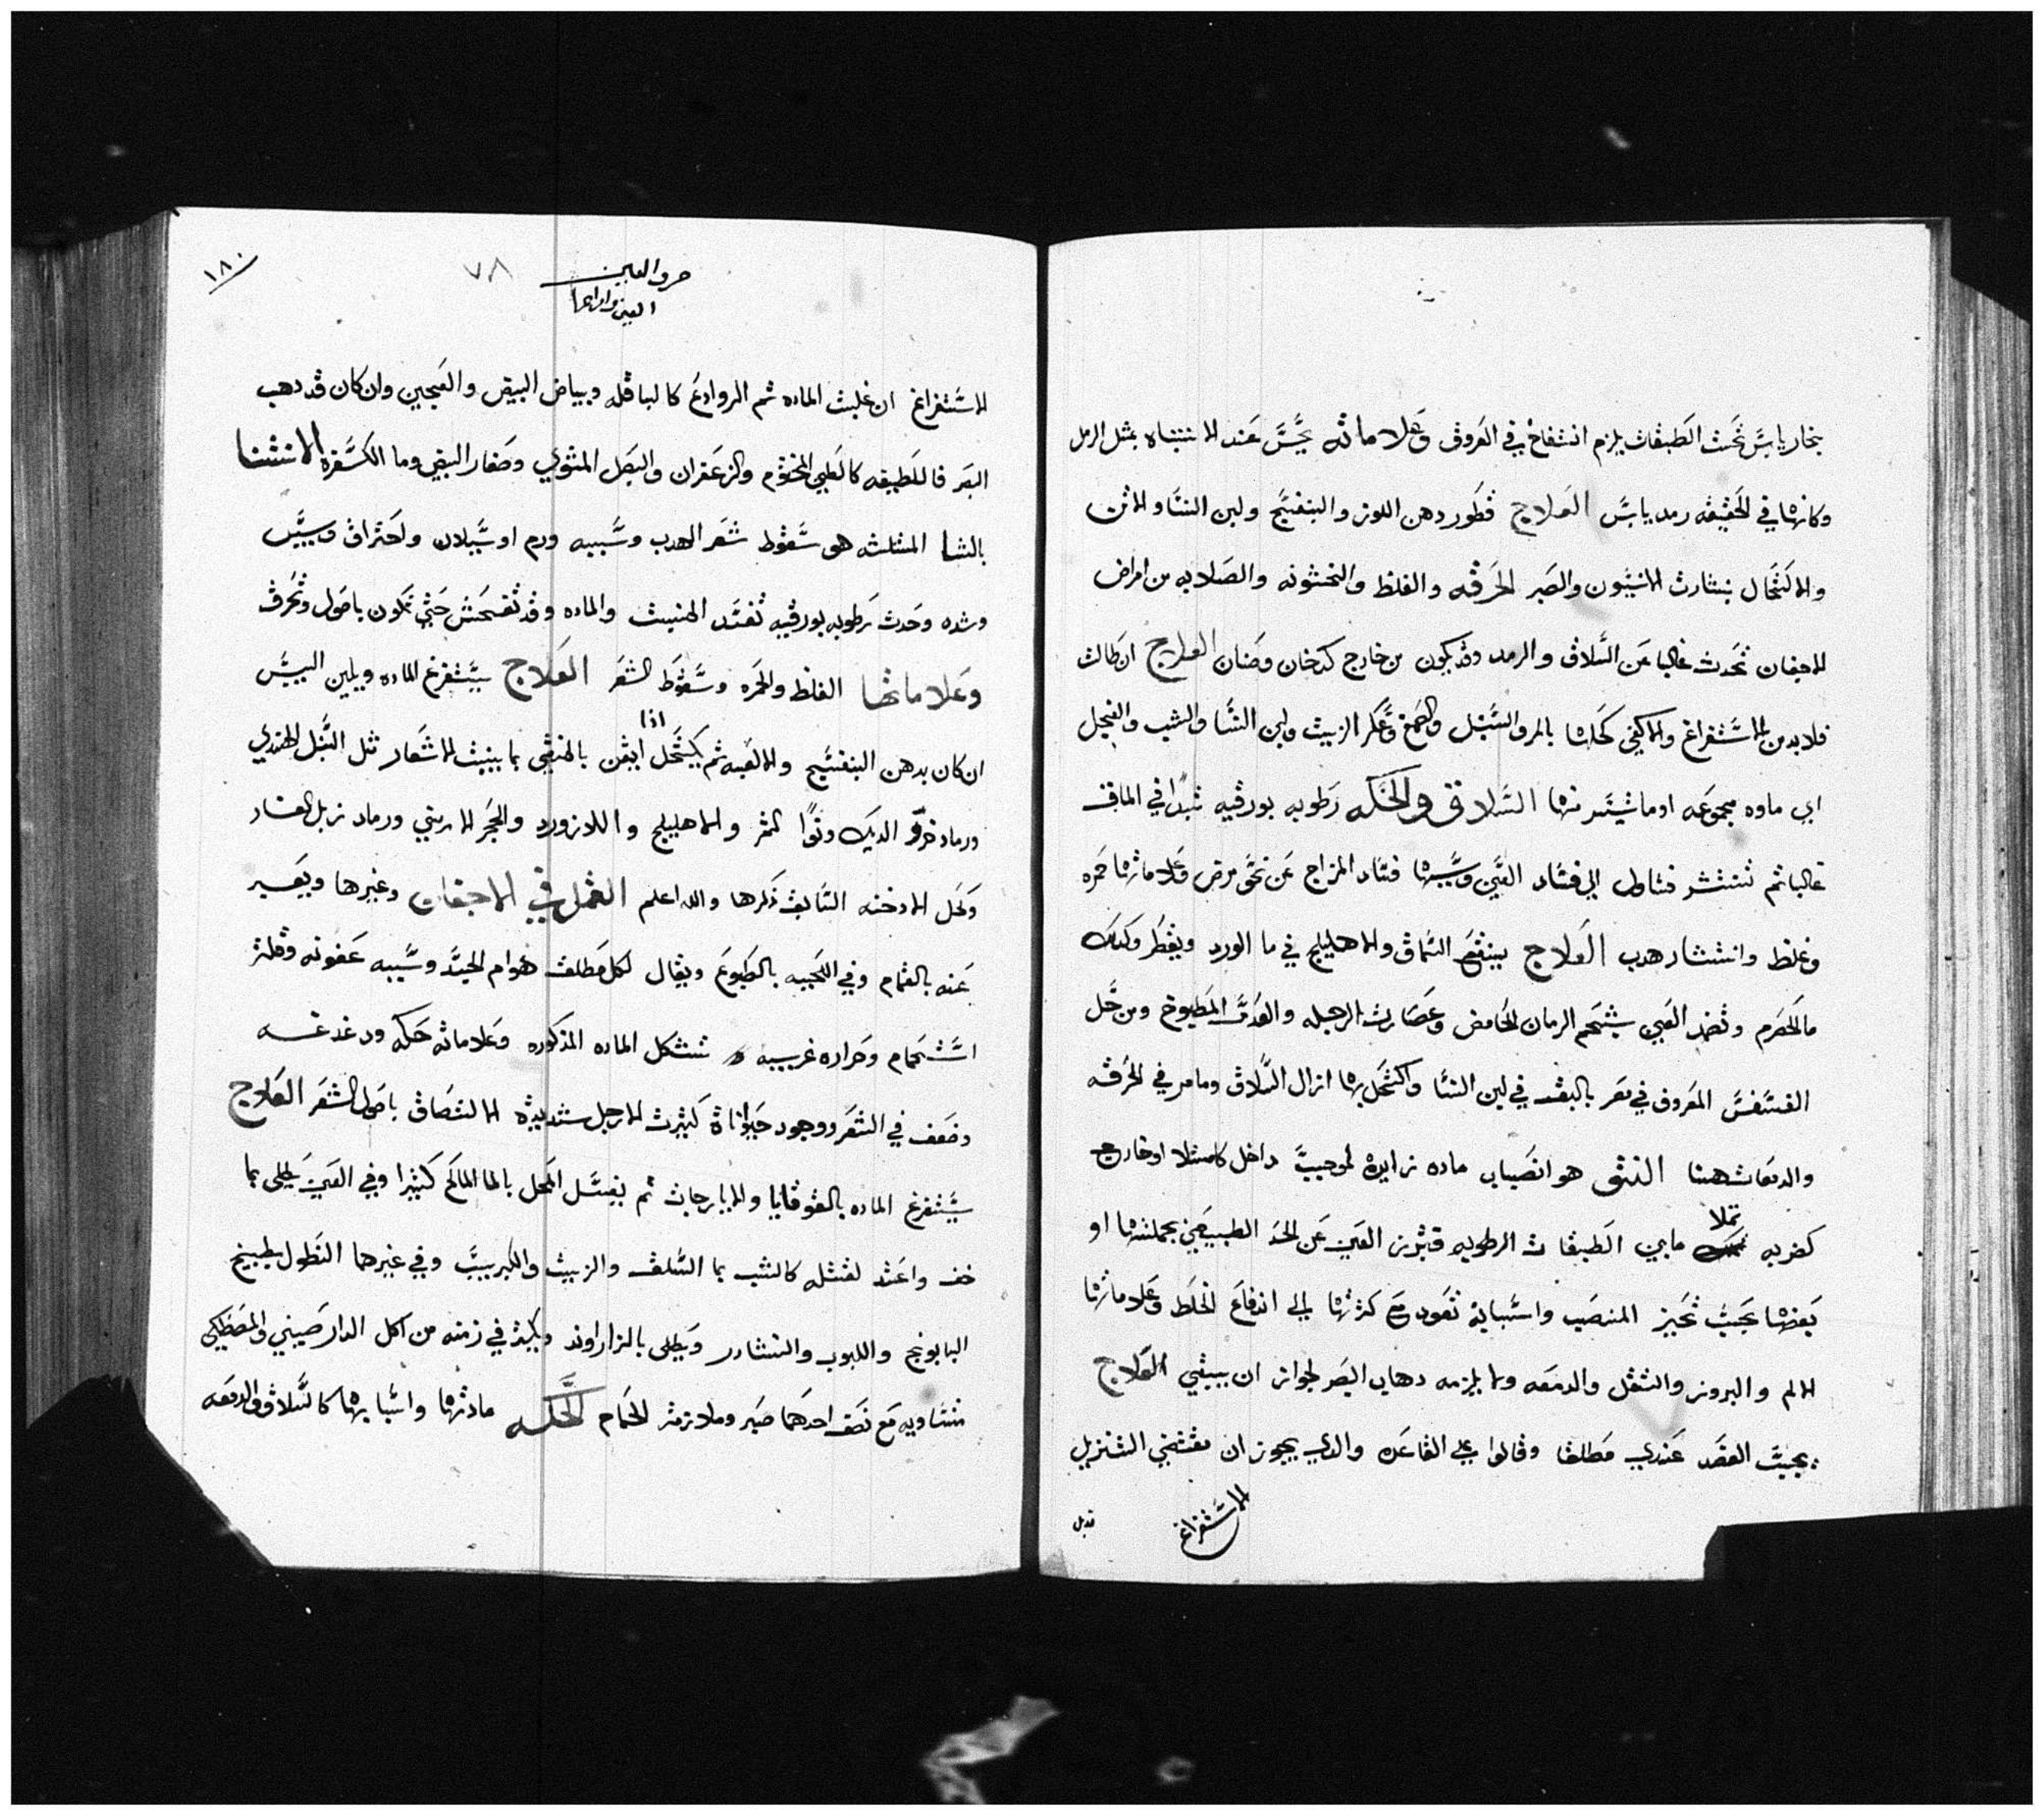 بخار يابس تحت الطبقات يلزم انتفاخ في العروق وعلاماته يحس عند الانتباه بمثل الرمل
وكانها في الحقيقه رمد يابس العلاج قطور دهن اللوز والبنفسج ولبن النسا والاتن
والاكتحال بنشارت الابنون والصبر الحرقه والغلظ والخشونه والصلابه من امراض
الاجفان تحدث غالبا عن السلاق والرمد وقد يكون من خارج كدخان وصنان العلاج ان طالت
فلا بد من الاستفراغ والا كفي كحلها بالمر والسنبل والصمغ وعكر الزيت ولبن النسا والشب والفجل
اي ماوه مجموعه او ما تيسر منها السلاق والحكه رطوبه بورقيه تبدا في الماق
غالبا ثم تنتشر فتاول الي فساد العين وسببها فساد المزاج عن نحو مرض وعلاماتها حمره
وغلظ وانتشار هدب العلاج ينقع السماق والاهليلج في ما الورد ويقطر وكدلك
ما الحصرم وتضمد العين بشحم الرمان الحامض وعصارت الرجله والعدس المطبوخ ومن حل
العنفس المعروف في مصر بالبقد في لبن النسا واكتحل بها ازال السلاق وما مر في الحرقه
والدمعات هنا النتو هو انصباب ماده زايده لموجب داخل كامتلا او خارج
كضربه تملا ما بين الطبقات الرطوبه فتبرز العين عن الحد الطبيعي بجملتها او
بعضها بحيث تحيز المنصب واسبابه تعود مع كثرتها الي اندفاع الخلط وعلاماتها
الالم والبروز والثقل والدمعه ولا يلزمه دهاب البصر لجواز ان يبقي العلاج
يجب الفصد عندي مطلقا وقالوا علي القاعده والدي يجوز ان مقتضي التنزيل
الاستفراغ
حرف العين
العين وامراضها
٧٨
١٨٠
الاستفراغ ان غلبت الماده ثم الروادع كالباقله وبياض البيض والعجين وان كان قد دهب
البصر فاللطيفه كالطين المختوم والزعفران والبصل المشوي وصفار البيض وما الكسفره الانتشا
بالشا المثلثه هو سقوط شعر الهدب وسببه ورم او سيلان واحتراق ويبس
وشده وحدت رطوبه بورقيه تفسد المنبت والماده وقد تفحش حتي تكون باصول وتحرق
وعلاماتها الغلظ والحمره وسقوط الشعر العلاج يستفرغ الماده ويلين اليبس
ان كان بدهن البنفسج والالعبه ثم يكتحل اذا ايقن بالنقي بما ينبت الاشعار مثل السنبل الهندي
ورماد خرو الديك ونوا التمر والاهليلج واللازورد والحجر الارمني ورماد زبل الفار
وكحل الادخنه السابق ذكرها والله اعلم القمل في الاجفان وغيرها ويعبر
عنه بالقمام وفي اللحيه بالطبوع ويقال لكل مطلق هوام الجسد وسببه عفونه وقلة
استحمام وحراره غريبه تشكل الماده المذكوره وعلاماته حكه ودغدغه
وضعف في الشعر ووجود حيواناة كثيرت الارجل شديدة الالتصاق باصول الشعر العلاج
يستفرغ الماده بالقوقايا والايارجات ثم يغسل المحل بالما المالح كثيرا وفي العين يطلي بما
خف واعتد لقتله كالشب بما السلق والزيت والكبريت وفي غيرهما النطول بطبيخ
البابونج واللبوب والنشادر ويطلي بالزراوند ويكثر في زمنه من اكل الدار صيني والمصطكي
متساويه مع نصف احدهما صبر وملازمة الحمام الحكه مادتها واسبابها كالسلاق والدمعه